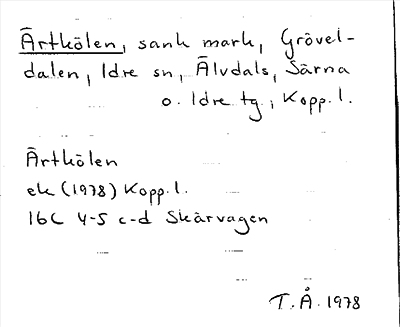 Ärtkölen, sank mark, Grövel-
dalen, Idre sn, Älvdals, Särna
o. Idre tg., Kopp.l.
Ärtkölen
ek (1978) Kopp.l.
16C 4-5 c-d Skärvagen
T.Å. 1978